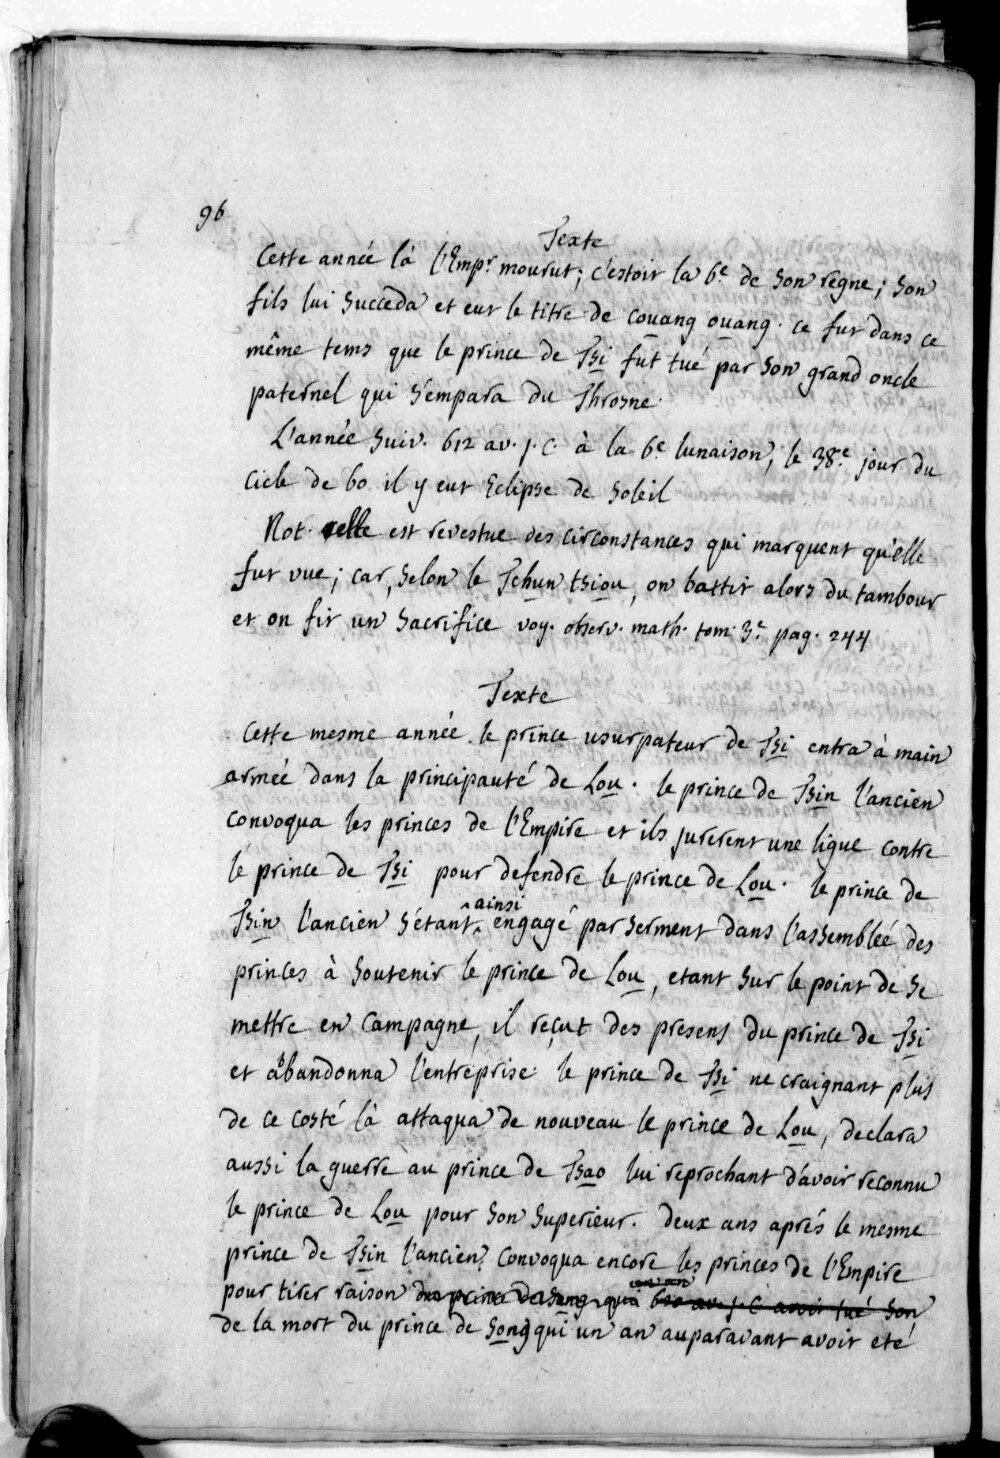 96
Texte
Cette année là l'Emp.r mourut; c'estoit la 6e de son regne; son
fils lui succeda et eut le titre de couang ouang. ce fut dans ce
même tems que le prince de Tsi fut tué par son grand oncle
paternel qui s'empara du Throsne.
L'année suiv. 612 av. j. c. à la 6e lunaison, le 38.e jour du
cicle de 60 il y eut Eclipse de soleil
Not. elle est revestue des circonstances qui marquent qu'elle
fut vue; car, selon le Tchun tsiou, on battit alors du tambour
et on fit un sacrifice voy. observ. math. tom. 3.e pag. 244
Texte
Cette mesme année le prince usurpateur de Tsi entra à main
armée dans la principauté de Lou. le prince de Tsin l'ancien
convoqua les princes de l'Empire et ils jurerent une ligue contre
le prince de Tsi pour defendre le prince de Lou. le prince de
Tsin l'ancien s'étant ainsi engagé par serment dans l'assemblée des
princes à soutenir le prince de Lou, etant sur le point de se
mettre en campagne, il reçut des presens du prince de Tsi
et abandonna l'entreprise. le prince de Tsi ne craignant plus
de ce costé là attaqua de nouveau le prince de Lou, declara
aussi la guerre au prince de Tsao lui reprochant d'avoir reconnu
le prince de Lou pour son superieur. deux ans aprés le mesme
prince de Tsin l'ancien convoqua encore les princes de l'Empire
pour tirer raison du prince de Song qui av. j. C avoit tué son
de la mort du prince de Song qui un an auparavant avoit eté